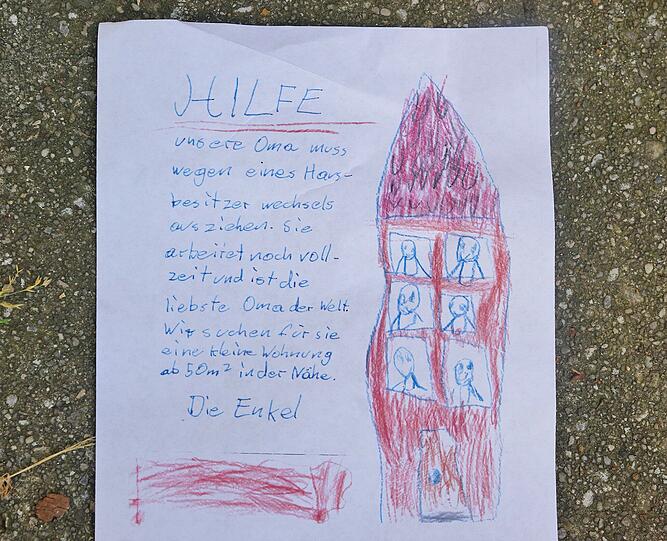 HILFE
unsere Oma muss
wegen eines Haus-
besitzer wechsels
ausziehen. Sie
arbeitet noch voll-
zeit und ist die
liebste Oma der Welt.
Wir suchen für sie
eine kleine Wohnung
ab 50m² in der Nähe.
Die Enkel